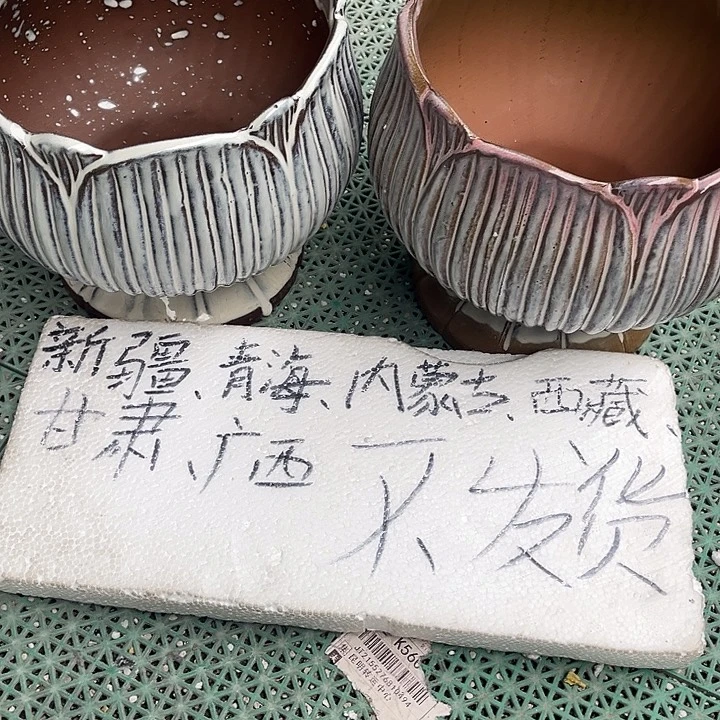 新疆、青海、内蒙古、西藏、
甘肃、广西 不发货
K560